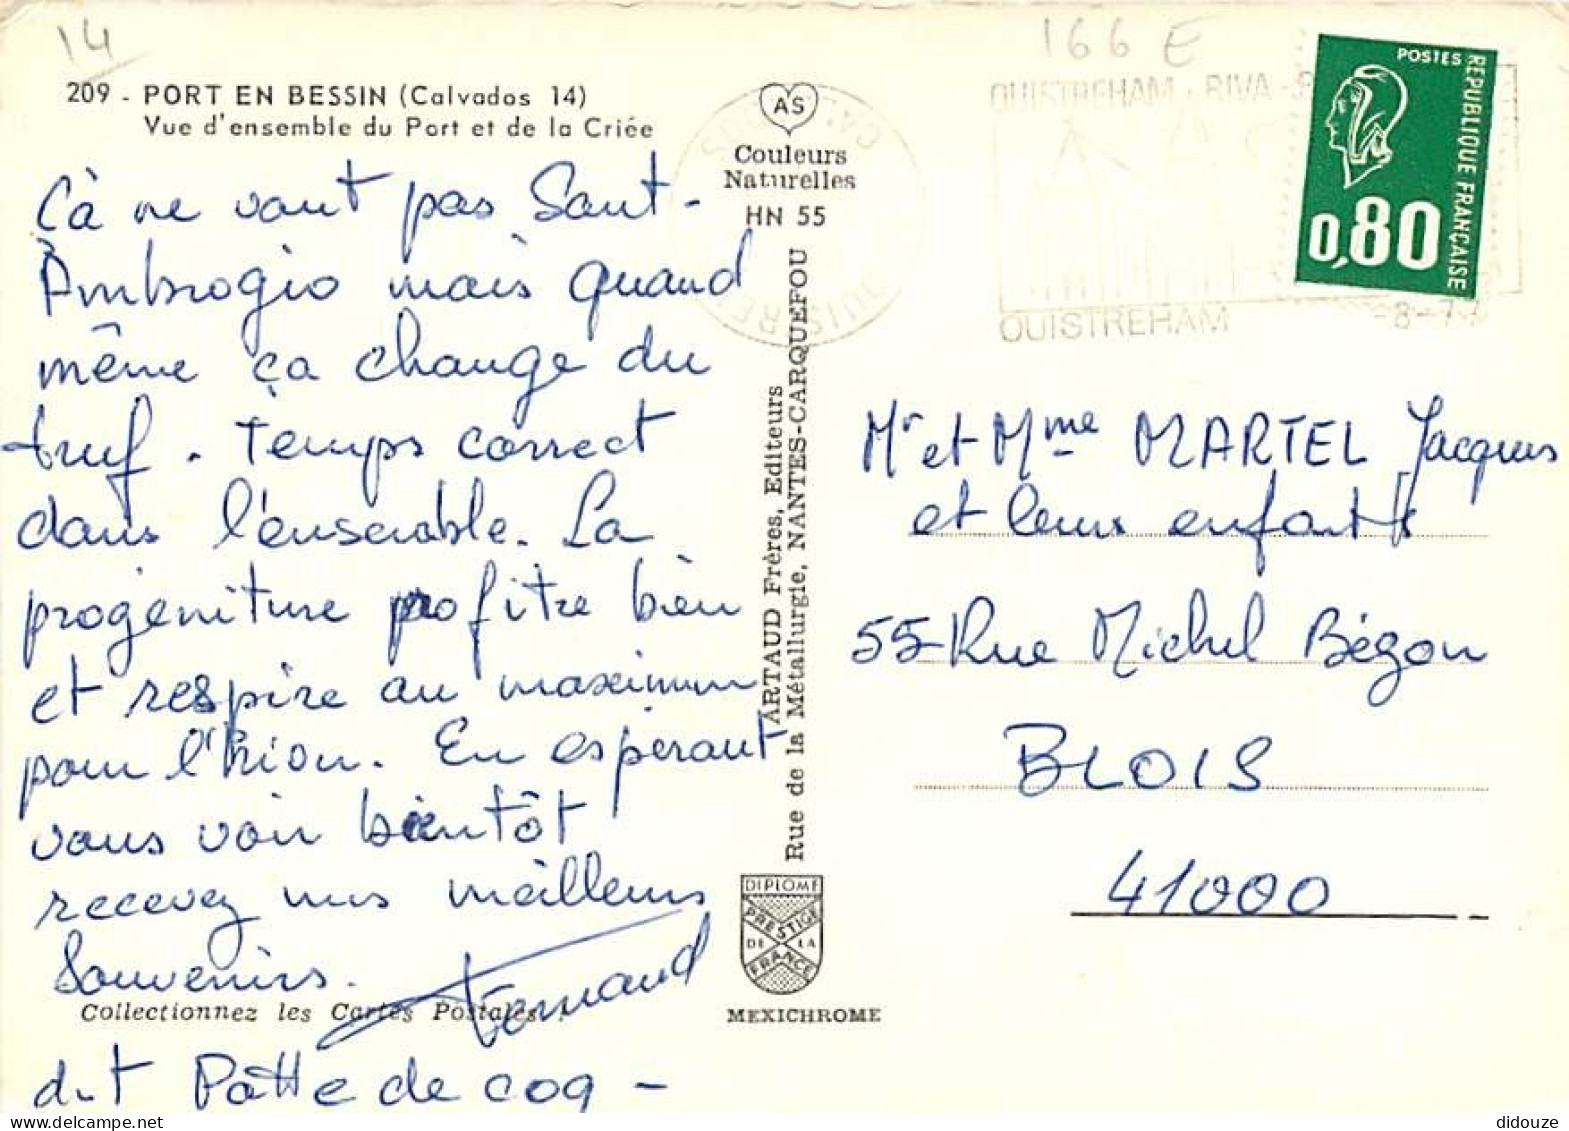 14
166 E
209 - PORT EN BESSIN (Calvados 14)
Vue d'ensemble du Port et de la Criée
AS
Couleurs
Naturelles
HN 55
Çà ne vaut pas Sant-
Ambrogio mais quand
même ça change du
truf. Temps correct
dans l'ensemble. La
progéniture profitre bien
et respire au maximum
pour l'hion. En espérant
vous voir bientôt
recevez nos meilleurs
Souvenirs.
Fernand
Collectionnez les Cartes Postales.
dit Patte de coq -
ARTAUD Frères, Editeurs
Rue de la Métallurgie, NANTES-CARQUEFOU
DIPLOME
PRESTIGE
DE LA
FRANCE
MEXICHROME
OUISTREHAM - RIVA-
OUISTREHAM
CALVADOS
-8-7
POSTES
REPUBLIQUE FRANÇAISE
0,80
Mr et Mme MARTEL Jacques
et leurs enfants
55 Rue Michel Bégon
BLOIS
41000
didouze